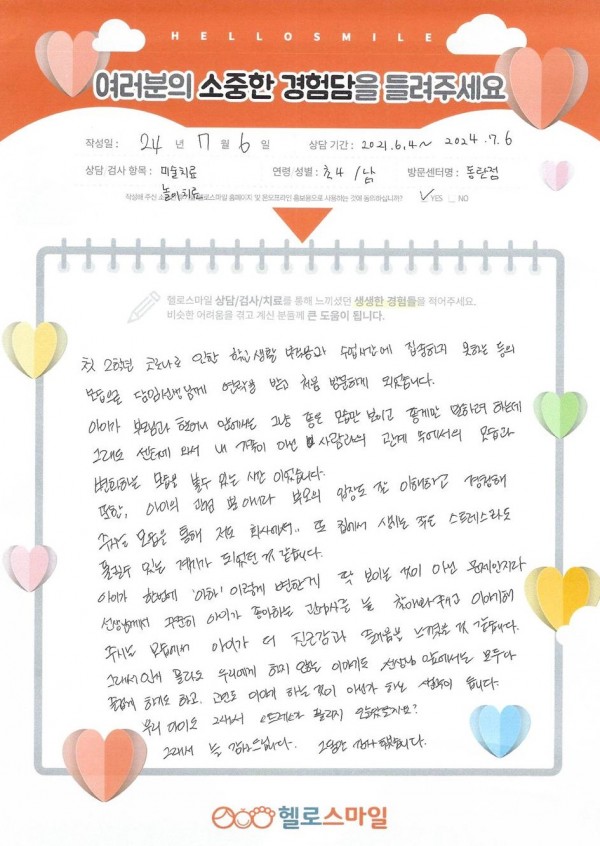 HELLOSMILE
여러분의 소중한 경험담을 들려주세요
작성일 : 24 년 7 월 6 일 상담 기간 : 2021.6.4~ 2024.7.6
상담 검사 항목 : 미술치료 연령 성별 : 초4 / 남 방문센터명 : 동탄점
놀이치료
작성해 주신 헬로스마일 홈페이지 및 온오프라인 홍보용으로 사용하는 것에 동의하십니까? ✓ YES NO
헬로스마일 상담/검사/치료를 통해 느끼셨던 생생한 경험들을 적어주세요.
비슷한 어려움을 겪고 계신 분들께 큰 도움이 됩니다.
첫 2학년 코로나로 인한 학교생활 부적응과 수업시간에 집중하지 못하는 등의
모습으로 담임선생님께 연락을 받고 처음 방문하게 되었습니다.
아이가 부모님과 앞에서는 그냥 좋은 모습만 보이고 좋게만 말하려 하는데
그래도 센터에 와서 내 가족이 아닌 사람과의 관계 속에서의 모습과
변화하는 모습을 볼수 있는 시간 이었습니다.
또한, 아이의 관점 뿐 아니라 부모의 입장도 잘 이해하고 경청해
주시는 모습을 통해 저도 회사에서.. 또 집에서 생기는 스트레스도
풀릴수 있는 계기가 되었던 것 같습니다.
아이가 한번에 '아하' 이렇게 변한게 딱 보이는 것이 아닌 문제인지라
선생님께서 꾸준히 아이가 좋아하는 관심사를 늘 찾아봐주시고 이야기해
주시는 모습에서 아이가 더 친근감과 즐거움을 느꼈을 것 같습니다.
그래서인지 몰라도 우리에게 하지 않는 이야기도 선생님 앞에서는 모두다
즐겁게 하기도 하고, 고민도 이야기 하는 것이 아닌가 하는 생각이 듭니다.
우리 아이도 그래서 스트레스가 풀리지 않았을지요?
그래서 늘 감사드립니다. 그동안 감사했습니다.
헬로스마일